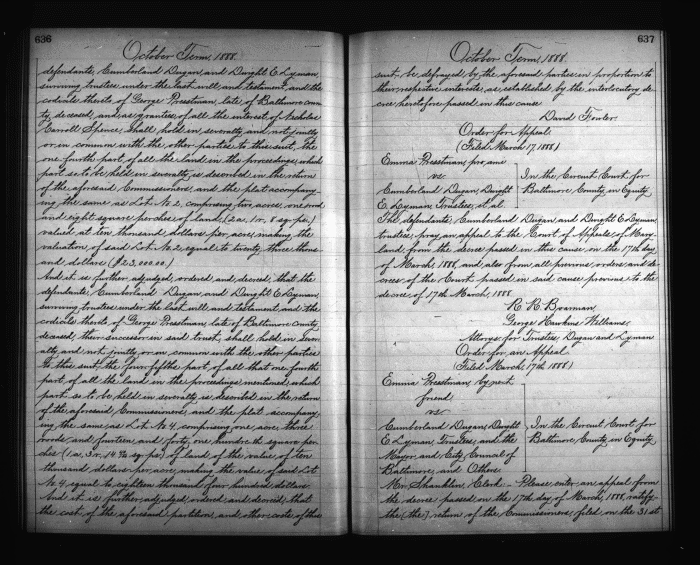 636
October Term, 1888.
defendants, Cumberland Dugan, and Dwight E Lyman,
surviving trustees under the last will and testament, and the
codicils thereto of George Presstman, late of Baltimore coun-
ty, deceased, and as grantees of all the interest of Nicholas
Carroll Spence, shall hold in severalty, and not jointly
or in common with the other parties to this suit, the
one fourth part of all the land in the proceedings, which
part so to be held in severalty is described in the return
of the aforesaid Commissioners and the plat accompany-
ing the same as Lot No 2, comprising two acres, one rood
and eight square perches of land, (2a. 1r. 8 sq. ps.)
valued at ten thousand dollars per acre, making the
valuation of said Lot No 2 equal to twenty three thous-
and dollars ($23,000.00)
And it is further adjudged, ordered and decreed, that the
defendants, Cumberland Dugan and Dwight E Lyman,
surviving trustees under the last will and testament and the
codicils thereto of George Presstman, late of Baltimore County,
deceased, their successor in said trust, shall hold in sever-
alty and not jointly or in common with the other parties
to this suit, the four fifths part, of all that one fourth
part, of all the land in the proceedings mentioned, which
part so to be held in severalty is described in the return
of the aforesaid Commissioners, and the plat accompany-
ing the same, as Lot No 4, comprising one acre, three
roods and fourteen and forty, one hundredths square per-
ches (1a. 3r. 14.40 sq. ps) of land of the value of ten
thousand dollars per acre, making the value of said Lot
No 4 equal to eighteen thousand four hundred dollars
And it is further adjudged, ordered and decreed, that
the costs, of the aforesaid partition, and other costs of this
637
October Term, 1888.
suit be defrayed by the aforesaid parties in proportion to
their respective interests, as established by the interlocutory de-
cree heretofore passed in this cause
David Fowler.
Order for Appeal
(Filed March 17, 1888)
Emma Presstman, pro ami
vs
Cumberland Dugan, Dwight
E. Lyman Trustees, et al
In the Circuit Court for
Baltimore County in Equity
The defendants, Cumberland Dugan and Dwight E Lyman,
trustees pray an appeal to the Court of Appeals of Mary-
land, from the decree passed in this cause, on the 17th day
of March, 1888, and also from all previous orders and de-
crees of the Court passed in said cause previous to the
decree of 17th March, 1888
R. R. Boarman,
George Hawkins Williams,
Attorneys for Trustees, Dugan and Lyman
Order for an Appeal
(Filed March, 17th 1888)
Emma Presstman, by next
friend
vs
Cumberland Dugan, Dwight
E Lyman, Trustees, and the
Mayor and City Council of
Baltimore and Others
In the Circuit Court for
Baltimore County, in Equity
Mr Shanklin, Clerk - Please enter an appeal from
the decree passed on the 17th day of March, 1888, ratify-
the (the) return of the Commissioners, filed on the 31st